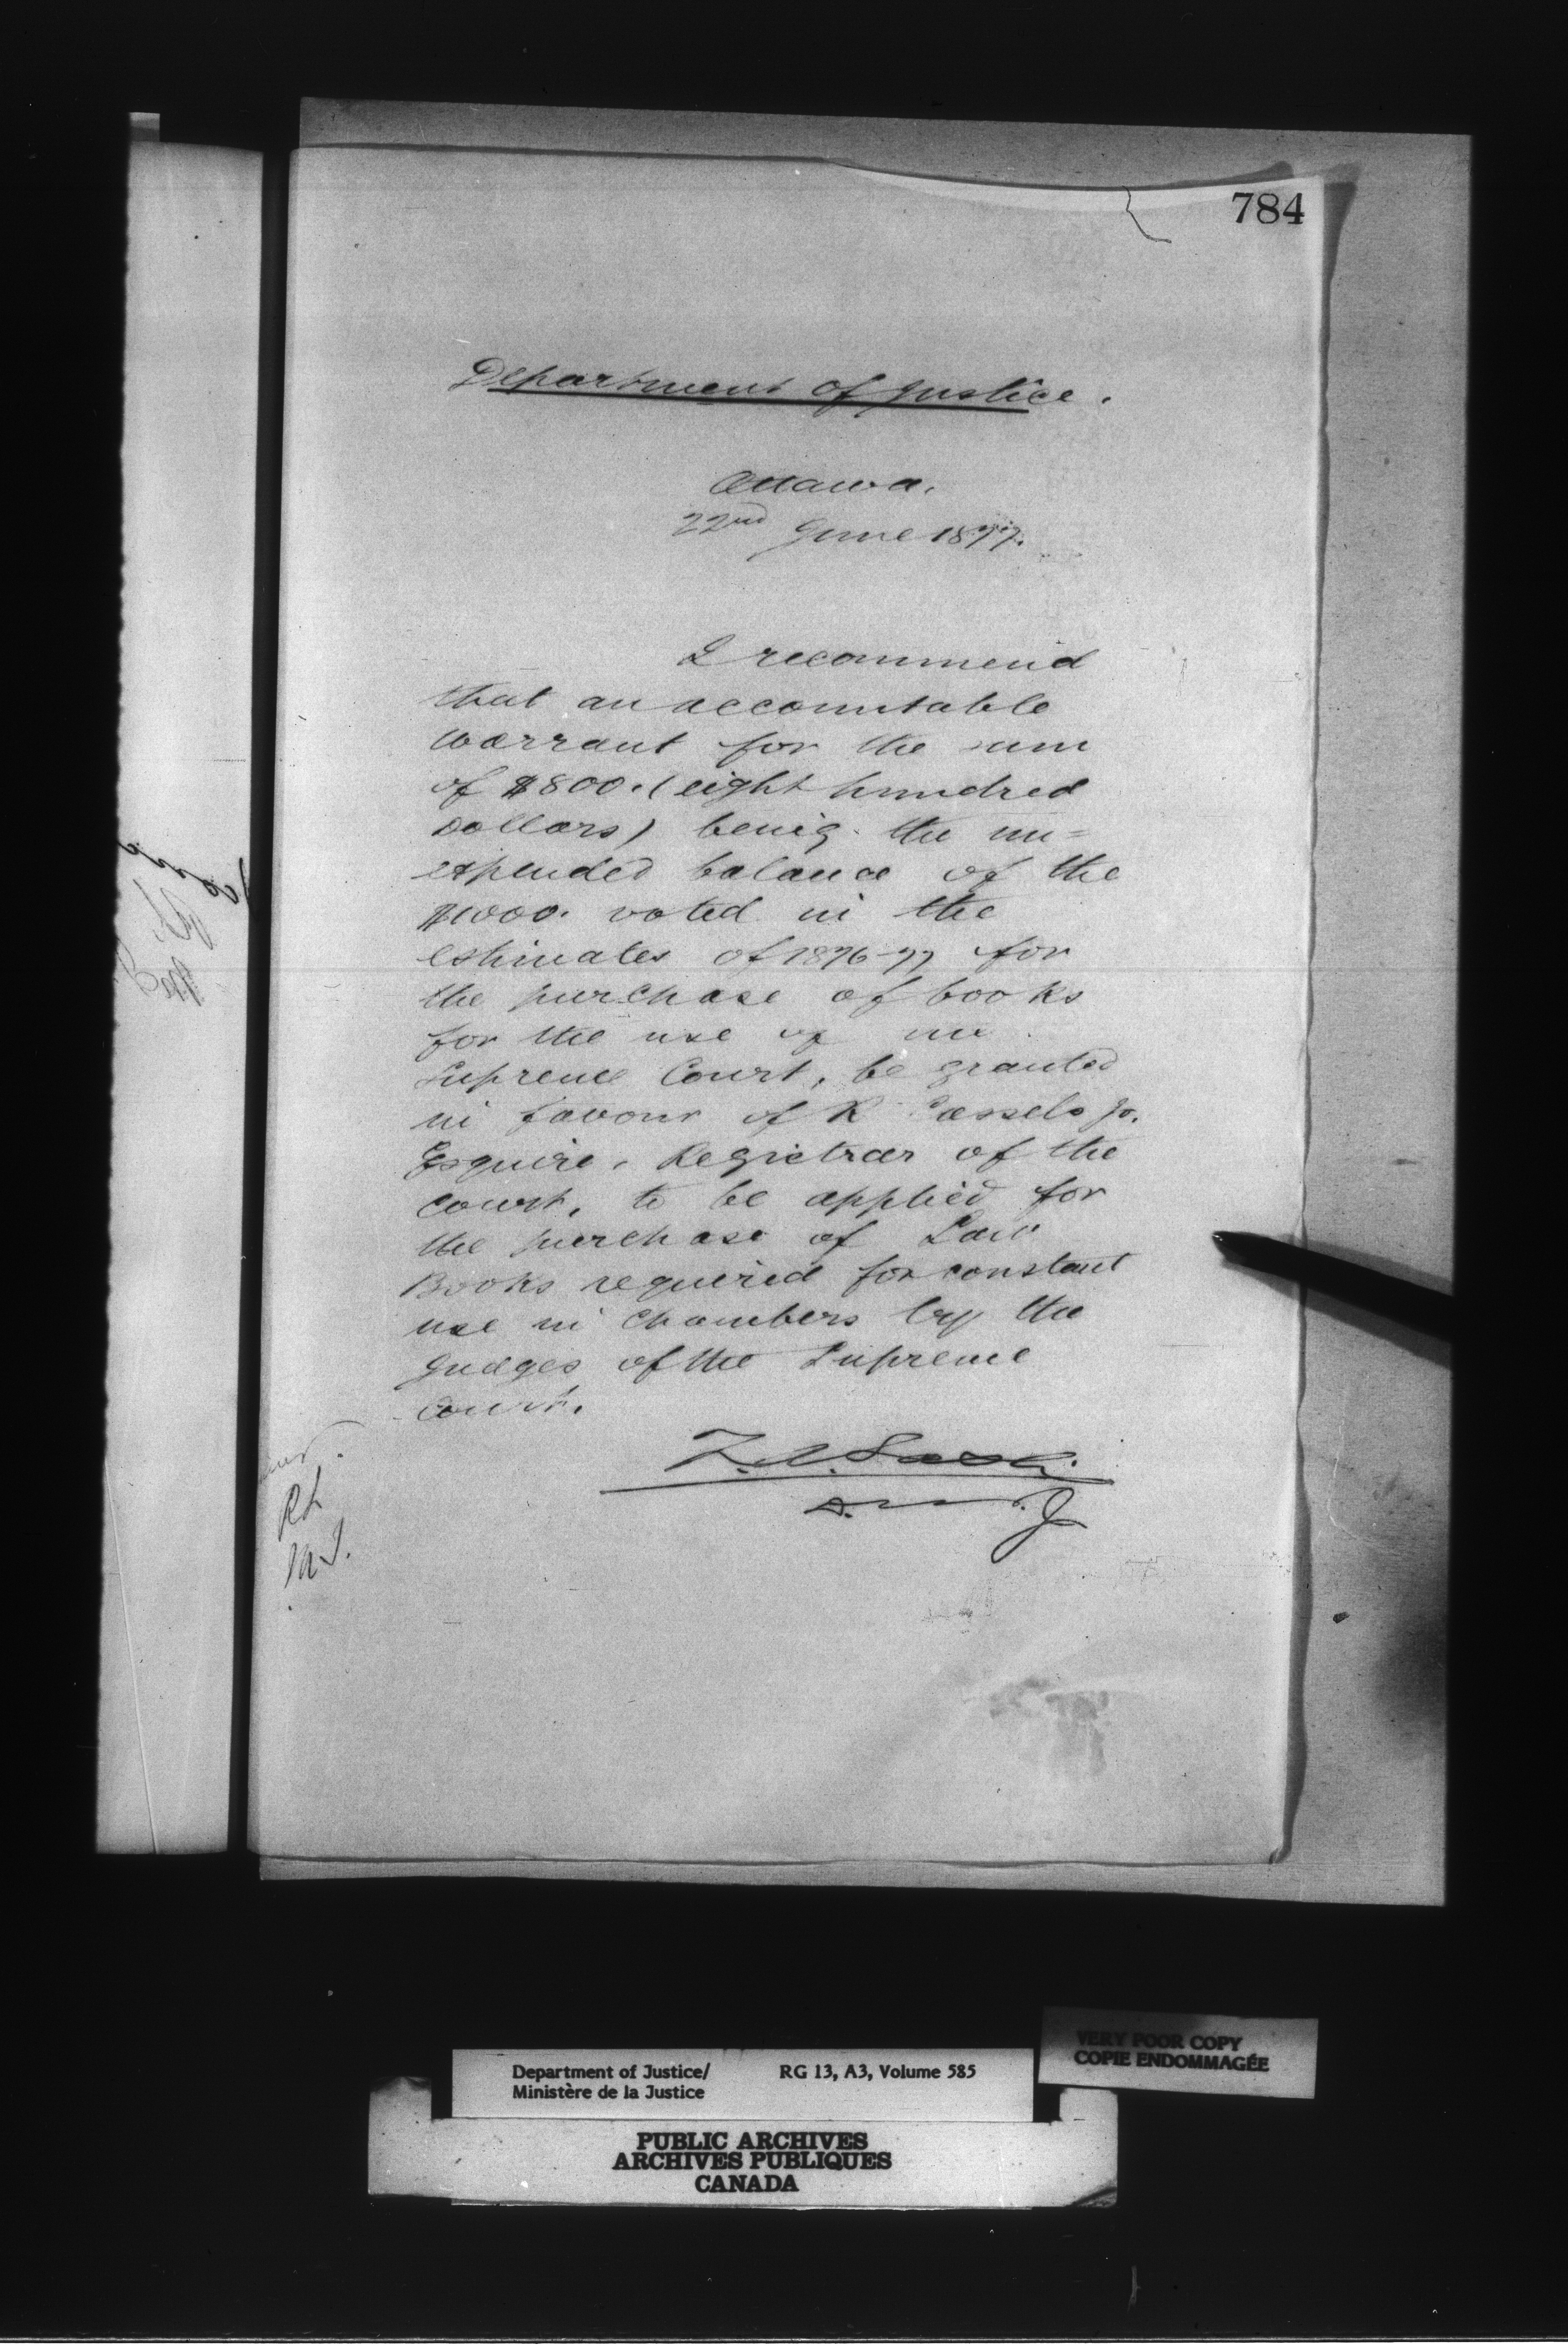 784
Department of Justice.
Ottawa.
22nd June 1877.
I recommend
that an accountable
warrant for the sum
of $800. (eight hundred
Dollars) being the un=
expended balance of the
$1000. voted in the
estimates of 1876-77 for
the purchase of books
for the use of the
Supreme Court, be granted
in favour of R Cassels Jr.
Esquire, Registrar of the
Court, to be applied for
the purchase of Law
Books required for constant
use in Chambers by the
Judges of the Supreme
Court.
Z. A. Lash
D. M. J
RL
M.J.
VERY POOR COPY
COPIE ENDOMMAGÉE
Department of Justice/ RG 13, A3, Volume 585
Ministère de la Justice
PUBLIC ARCHIVES
ARCHIVES PUBLIQUES
CANADA